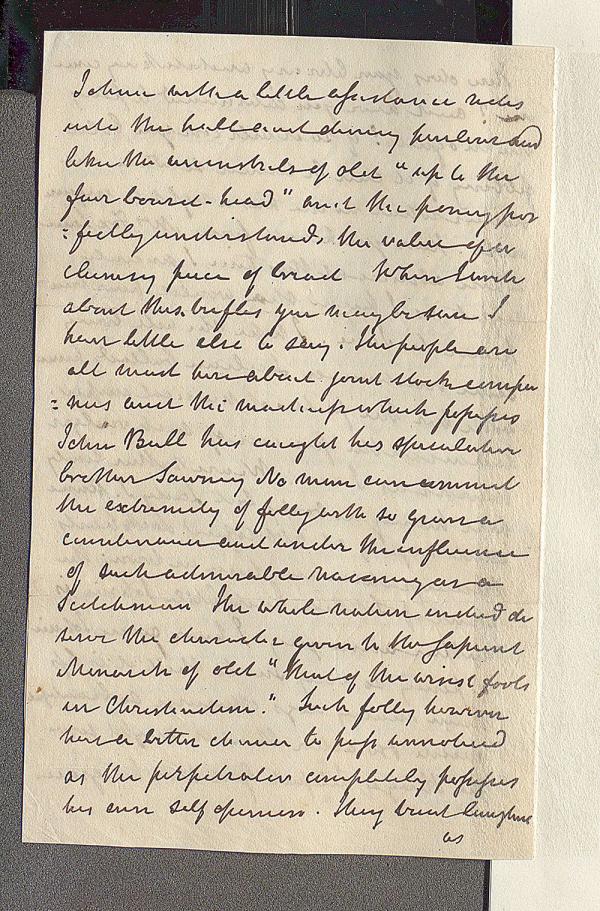 Johnie with a little assistance rides
into the hall and dining parlour and
like the minstrels of old "up to the
fair board-head" and the poney per
=fectly understands the value of a
cheering piece of bread When I write
about this trifles you may be sure I
have little else to say. The people are
all mad here about joint stock compa
=nies and the madness which possesses
John Bull has caught his speculative
brother Sawney No man can commit
the extremity of folly with so grave a
countenance and under the influence
of such admirable reasoning as a
Scotchman The whole nation indeed de
serve the character given to the sapient
Monarch of old "that of the wisest fools
in Christendom." Such folly however
has a better chance to pass unnoticed
as the perpetrator completely possesses
his own self opinion. They want laughing
as